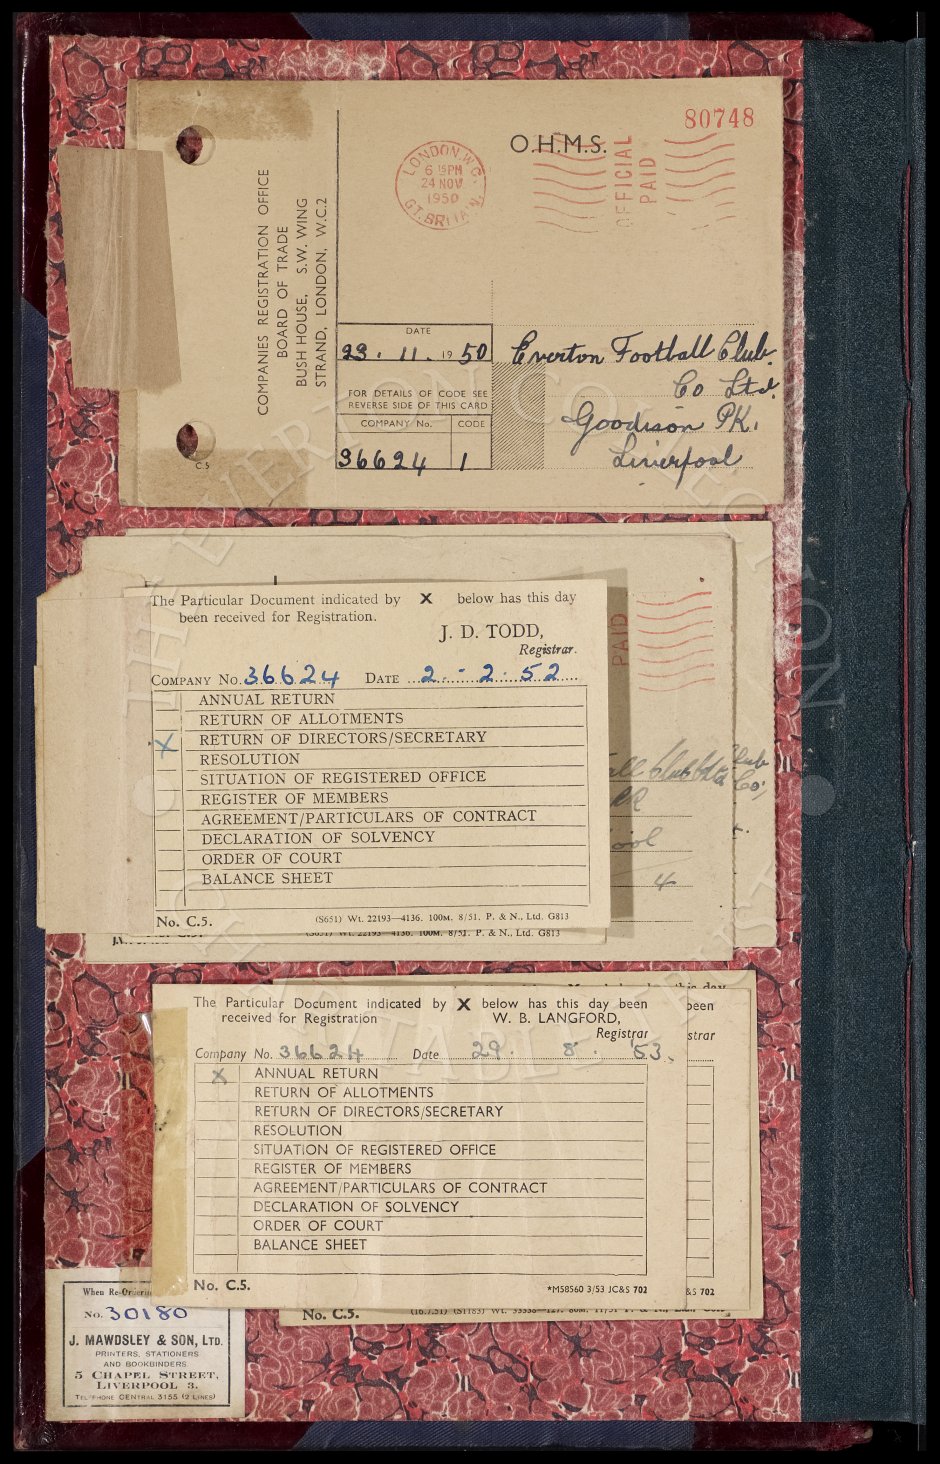 80748
O.H.M.S.
LONDON. W.C.
6 15PM
24 NOV
1950
GT. BRITAIN
OFFICIAL
PAID
COMPANIES REGISTRATION OFFICE
BOARD OF TRADE
BUSH HOUSE, S.W. WING
STRAND, LONDON, W.C.2
DATE
23 . 11 . 19 50
FOR DETAILS OF CODE SEE
REVERSE SIDE OF THIS CARD
COMPANY No. CODE
36624 1
C.5
Everton Football Club
Co Ltd.
Goodison PK.
Liverpool
The Particular Document indicated by X below has this day
been received for Registration.
J. D. TODD,
Registrar.
COMPANY No. 36624 DATE 2 - 2. 52
ANNUAL RETURN
RETURN OF ALLOTMENTS
X RETURN OF DIRECTORS/SECRETARY
RESOLUTION
SITUATION OF REGISTERED OFFICE
REGISTER OF MEMBERS
AGREEMENT/PARTICULARS OF CONTRACT
DECLARATION OF SOLVENCY
ORDER OF COURT
BALANCE SHEET
No. C.5. (S651) Wt. 22193—4136. 100M. 8/51. P. & N., Ltd. G813
(S651) Wt. 22193—4136. 100M. 8/51. P. & N., Ltd. G813
PAID
Club
Co,
ool
4
The Particular Document indicated by X below has this day been
received for Registration W. B. LANGFORD,
Registrar
Company No. 36624 Date 29. 8. 53.
X ANNUAL RETURN
RETURN OF ALLOTMENTS
RETURN OF DIRECTORS/SECRETARY
RESOLUTION
SITUATION OF REGISTERED OFFICE
REGISTER OF MEMBERS
AGREEMENT/PARTICULARS OF CONTRACT
DECLARATION OF SOLVENCY
ORDER OF COURT
BALANCE SHEET
No. C.5. *M58560 3/53 JC&S 702
been
strar
&S 702
No. C.5.
When Re-Orderin
No. 30180
J. MAWDSLEY & SON, LTD.
PRINTERS, STATIONERS
AND BOOKBINDERS
5 CHAPEL STREET,
LIVERPOOL 3.
TELEPHONE CENTRAL 3155 (2 LINES)
THE EVERTON COLLECTION
CHARITABLE TRUST